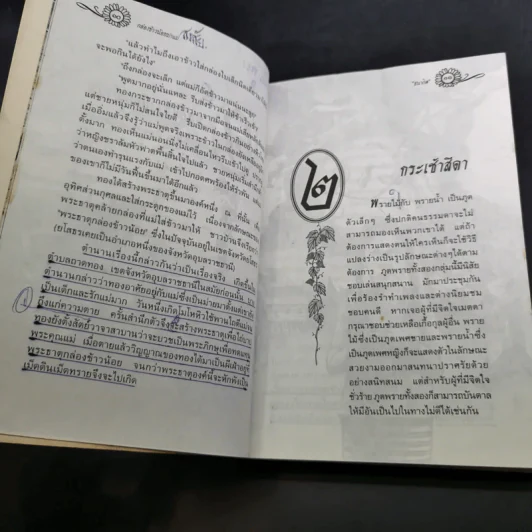 กล่องข้าวน้อยฆ่าแม่
"แล้วทำไมถึงเอาข้าวใส่กล่องใบเล็กนิดเดียว
จะพอกินได้ยังไง"
"ถึงกล่องจะเล็ก แต่แม่ก็อัดข้าวมาแน่น
"พูดมากอยู่นั่นแหละ รีบส่งข้าวมาให้ข้าเร็วเข้า"
ทองกระชากกล่องข้าวมาจากมือ
แต่ชายหนุ่มก็ไม่สนใจใยดี รีบเปิดกล่องข้าว
เมื่ออิ่มแล้วจึงรู้ว่าแม่พูดจริงเพราะข้าวในกล่อง
ตั้งมาก ทองเห็นแม่นอนนิ่งไม่เคลื่อนไหวรีบเข้าไป
ว่าหญิงชราล้มหัวฟาดพื้นสิ้นใจไปแล้ว ชายหนุ่ม
ว่าตนเองทำรุนแรงกับแม่ เข้าไปกอดศพร้องไห้
ของเขาก็ไม่มีวันฟื้นขึ้นมาได้อีกแล้ว
ทองได้สร้างพระธาตุขึ้นมาองค์หนึ่ง ณ ที่นั้น
อุทิศส่วนกุศลและใส่กระดูกของแม่ไว้ เนื่องจากลักษณะ
พระธาตุคล้ายกล่องที่แม่ใส่ข้าวมาให้ ชาวบ้านจึงเรียก
"พระธาตุกล่องข้าวน้อย" ซึ่งในปัจจุบันอยู่ในเขตจังหวัดยโสธร
(ยโสธรเคยเป็นอำเภอหนึ่งของจังหวัดอุบลราชธานี)
ตำนานเรื่องนี้กล่าวกันว่าเป็นเรื่องจริง เกิดขึ้น
ตำบลตาดทอง เขตจังหวัดอุบลราชธานีในสมัยก่อนนั้น
ตำนานกล่าวว่าทองอาศัยอยู่กับแม่ซึ่งเป็นม่ายมาตั้งแต่
เป็นเด็กและรักแม่มาก วันหนึ่งเกิดโมโหหิวใช้พานโถตีแม่
ถึงแก่ความตาย ครั้นสำนึกตัวจึงจะสร้างพระธาตุเพื่อไถ่บาป
ทองยังตั้งสัตย์วาจาสาบานว่าจะบวชเป็นพระภิกษุเพื่อทดแทน
พระคุณแม่ เมื่อตายแล้ววิญญาณของทองได้มาเป็นผีเฝ้าอยู่ที่
พระธาตุกล่องข้าวน้อย จนกว่าพระธาตุองค์นี้จะหักพังเป็น
เม็ดดินเม็ดทรายจึงจะไปเกิด
๒
กระเช้าสีดา
พรายไม้กับ พรายน้ำ เป็นภูต
ตัวเล็กๆ ซึ่งปกติคนธรรมดาจะไม่
สามารถมองเห็นพวกเขาได้ แต่ถ้า
ต้องการแสดงตนให้ใครเห็นก็จะใช้วิธี
แปลงร่างเป็นรูปลักษณะต่างๆได้ตาม
ต้องการ ภูตพรายทั้งสองกลุ่มนี้มีนิสัย
ชอบเล่นสนุกสนาน มักมาประชุมกัน
เพื่อร้องรำทำเพลงและต่างนิยมชม
ชอบคนดี หากเจอผู้ที่มีจิตใจเมตตา
กรุณาชอบช่วยเหลือเกื้อกูลผู้อื่น พราย
ไม้ซึ่งเป็นภูตเพศชายและพรายน้ำซึ่ง
เป็นภูตเพศหญิงก็จะแสดงตัวในลักษณะ
สวยงามออกมาสนทนาปราศรัยด้วย
อย่างสนิทสนม แต่สำหรับผู้ที่มีจิตใจ
ชั่วร้าย ภูตพรายทั้งสองก็สามารถบันดาล
ให้มีอันเป็นไปในทางไม่ดีได้เช่นกัน